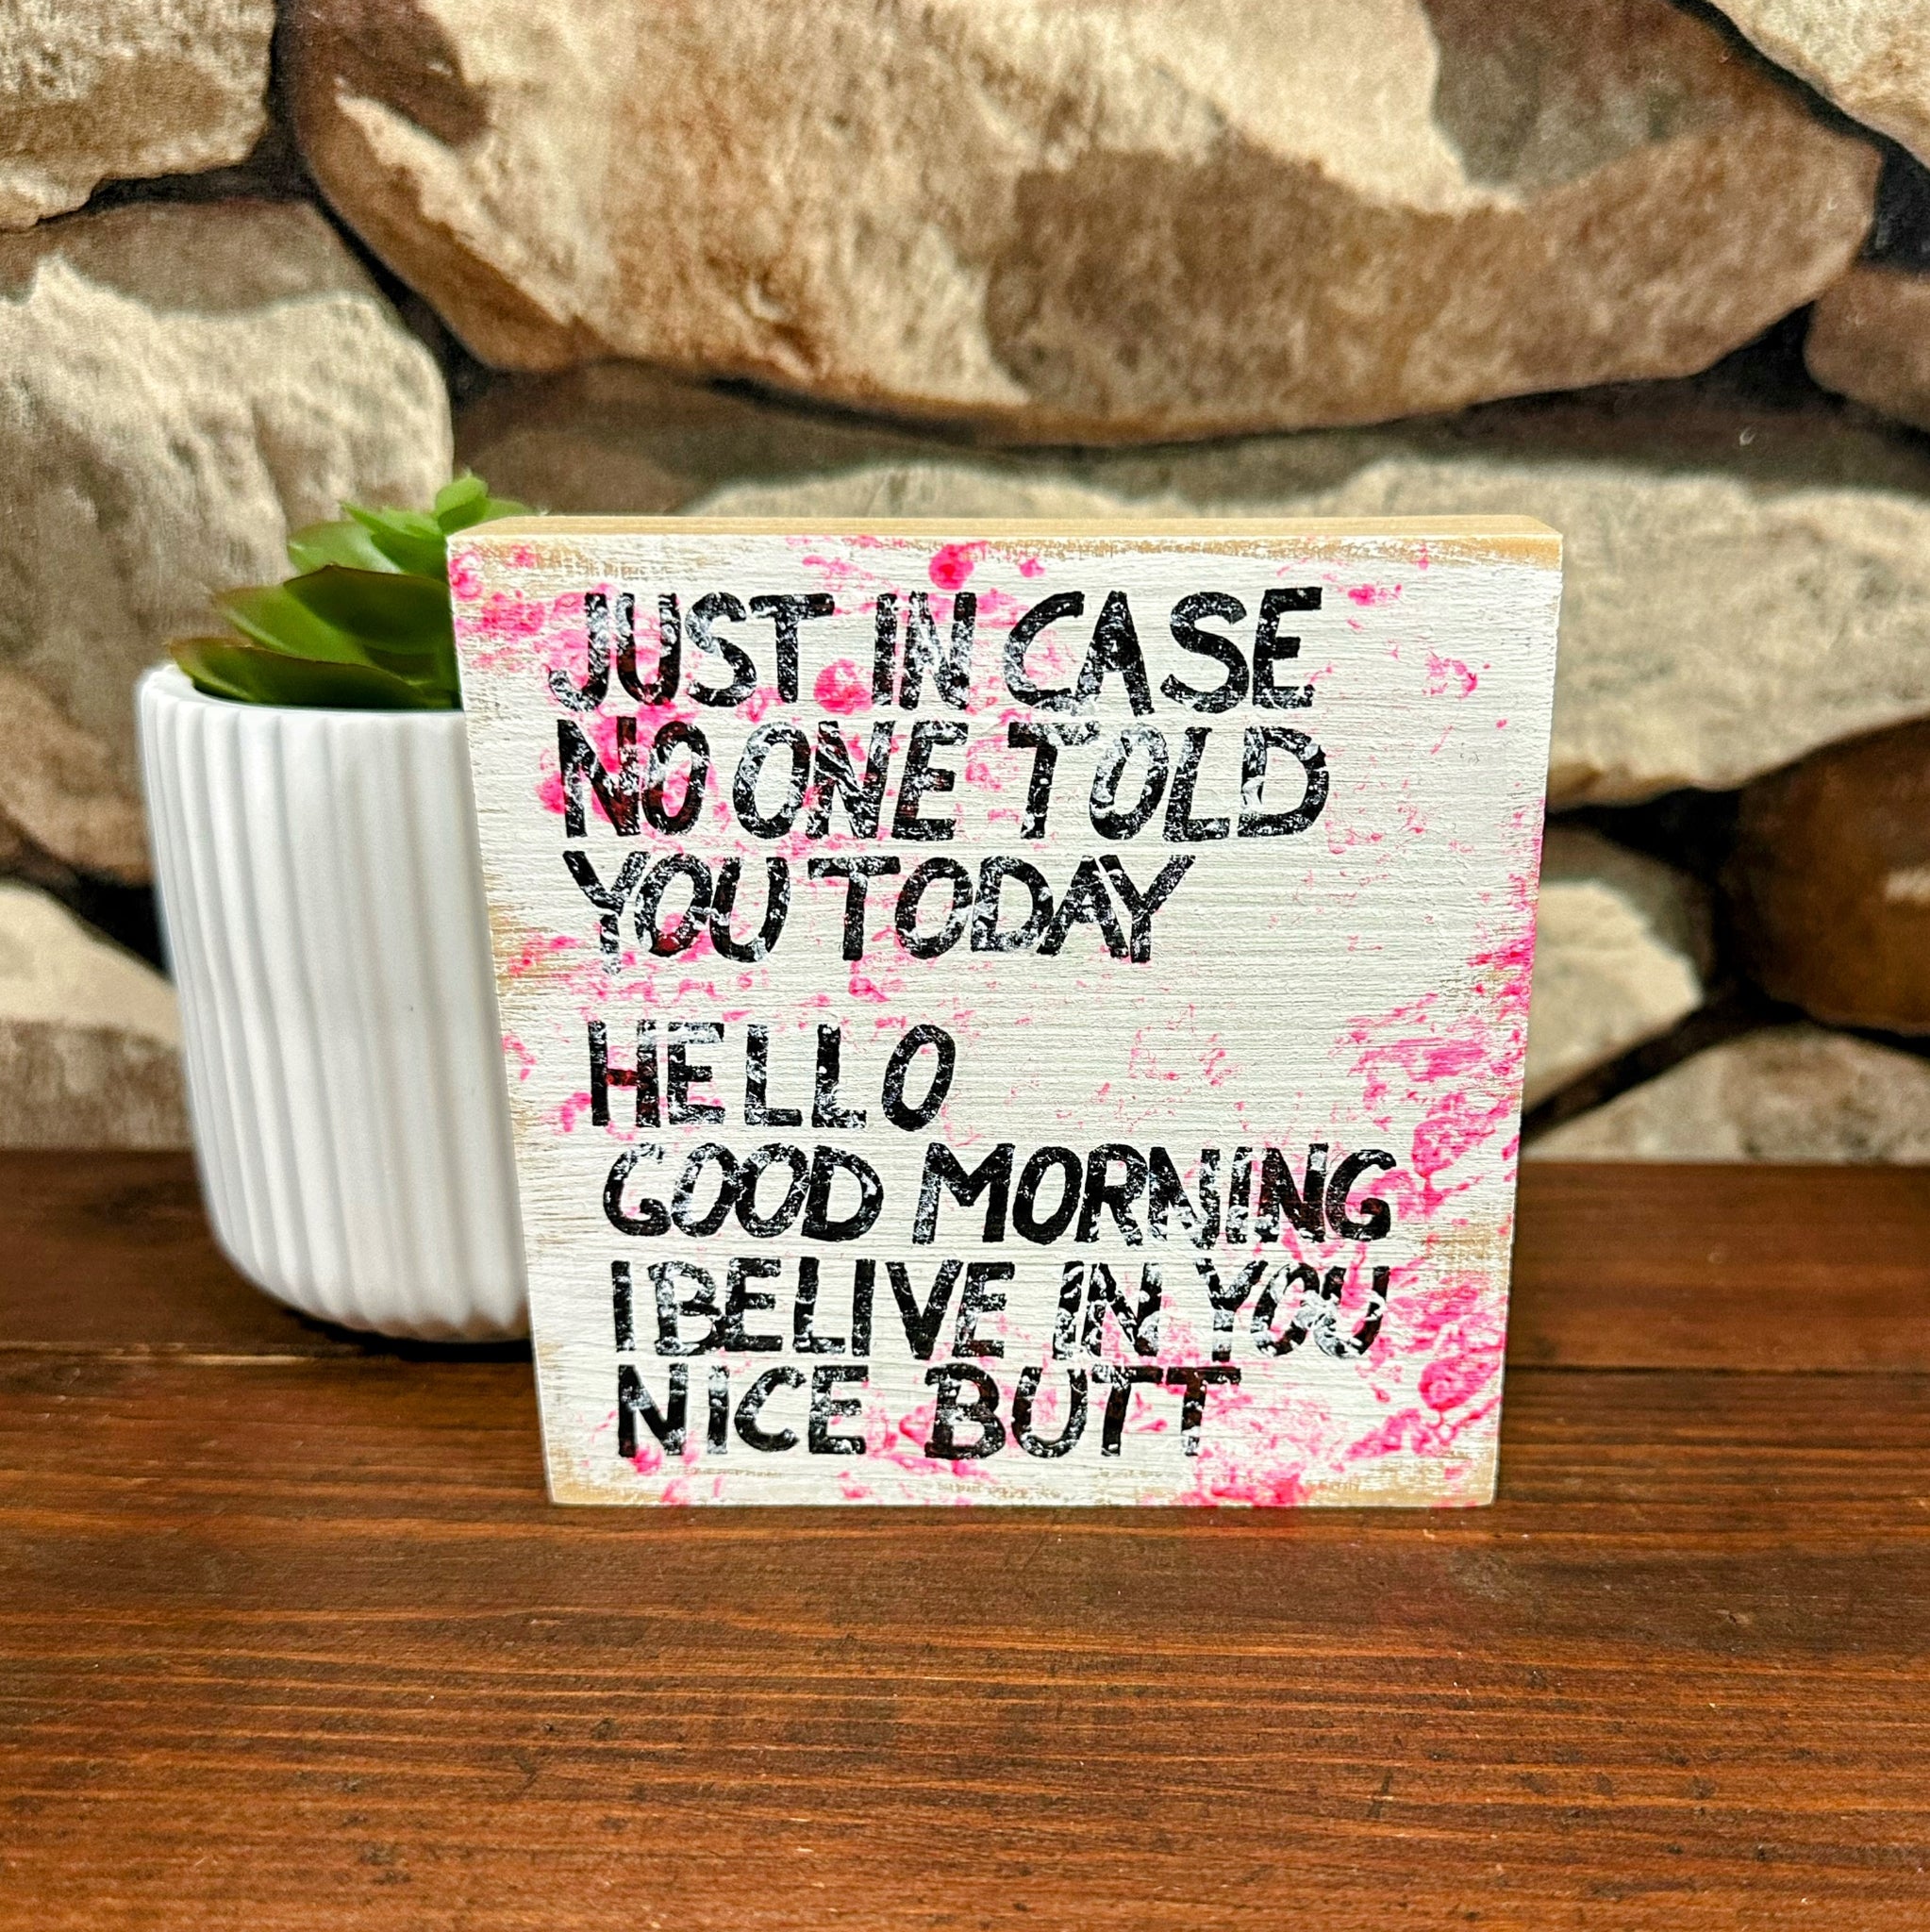 JUST IN CASE
NO ONE TOLD
YOU TODAY
HELLO
GOOD MORNING
I BELIVE IN YOU
NICE BUTT